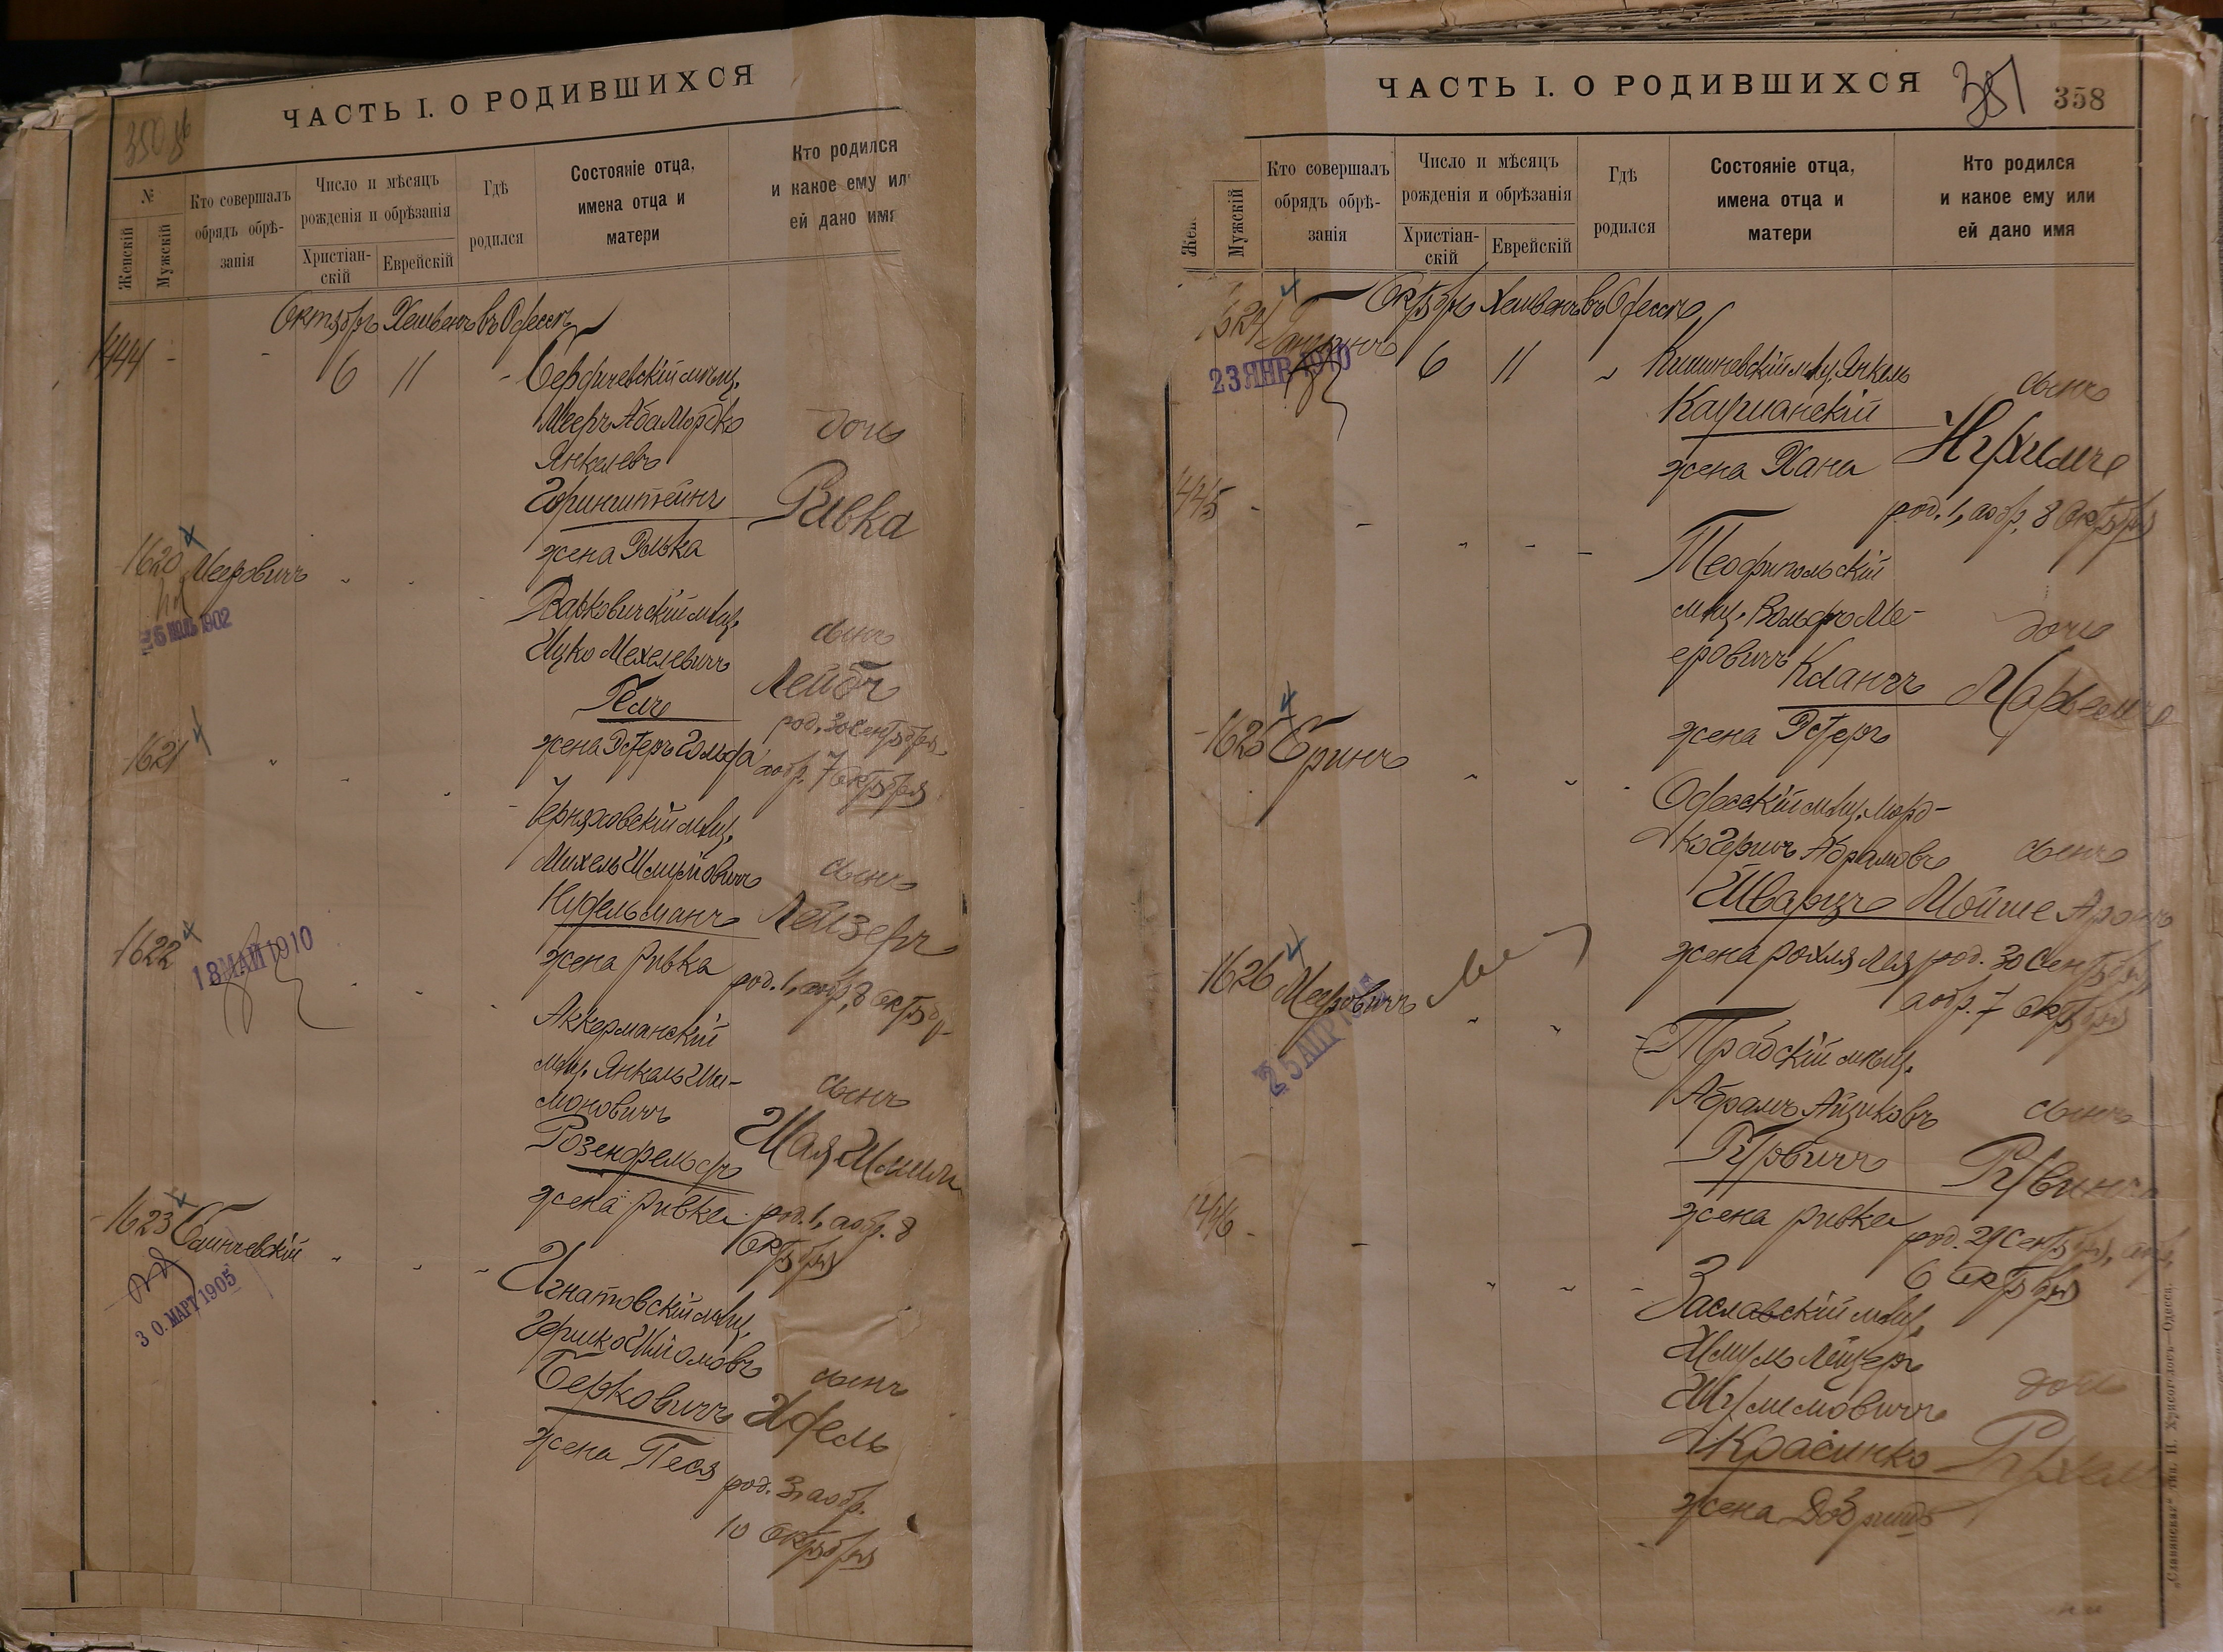 ЧАСТЬ I. О РОДИВШИХСЯ
№
Женскій
Мужскій
Кто совершалъ
обрядъ обрѣ-
занія
Число и мѣсяцъ
рожденія и обрѣзанія
Христіан-
скій
Еврейскій
Гдѣ
родился
Состояніе отца,
имена отца и
матери
Кто родился
и какое ему ил
ей дано имя
Октябрь Хешвенъ въ Одессѣ
1444 - - 6 11 -
Бердичевскій мѣщ.
Мееръ Аба Мордко
Янкелевъ
Гринштейнъ
жена Элька
дочь
Ривка
1620 Мееровичъ
1902
мѣщ.
Ицко Мехелевичъ
Гелъ
жена Эстеръ Гольда
сынъ
Лейбъ
род. 30 Сентября
а обр. 7 Октября
1621
Черняховскій мѣщ.
Михель Шлиомовичъ
Нудельманъ
жена Ривка
сынъ
Лейзеръ
род. 1, а обр. 8 Октябр
1622
18 МАЙ 1910
Аккерманскій
мѣщ. Янкель Ши-
моновичъ
Розенфельдъ
жена Ривка
сынъ
Шая
род. 1, а обр. 8
Октября
1623
30. МАРТ 1905
Игнатовскій мѣщ.
Гершко Шліомовъ
Берковичъ
жена Песя
сынъ
Идель
род. 3, а обр.
10 Октября
ЧАСТЬ I. О РОДИВШИХСЯ
351
358
Жен
Мужскій
Кто совершалъ
обрядъ обрѣ-
занія
Число и мѣсяцъ
рожденія и обрѣзанія
Христіан-
скій
Еврейскій
Гдѣ
родился
Состояніе отца,
имена отца и
матери
Кто родился
и какое ему или
ей дано имя
Октябрь Хешвенъ въ Одессѣ
1624
23 ЯНВ 1910
6 11
Кишиневскій мѣщ. Янкель
Каушанскій
жена Хана
сынъ
род. 1, а обр. 8 Октября
1445 - -
Теофипольскій
мѣщ. Вольфъ Ме-
еровичъ Кланцъ
жена Эстеръ
дочь
1625 Гринъ
Одесскій мѣщ. Морд-
ко Гершъ Абрамовъ
Шварцъ
жена Рохля Лея
сынъ
Мойше Аронъ
род. 30 Сентября,
а обр. 7 Октября
1626 Мееровичъ
25 АПР
Трабскій мѣщ.
Абрамъ Айзиковъ
Гурвичъ
жена Ривка
сынъ
Рувинъ
род. 29 Сентября, а обр.
6 Октября
1446 - -
Заславскій мѣщ.
Шлума Лейзеръ
Шулимовичъ
Красинко
жена Добришъ
дочь
Рухель
„Славянская“ тип. Н. Хрисогелосъ Одесса.